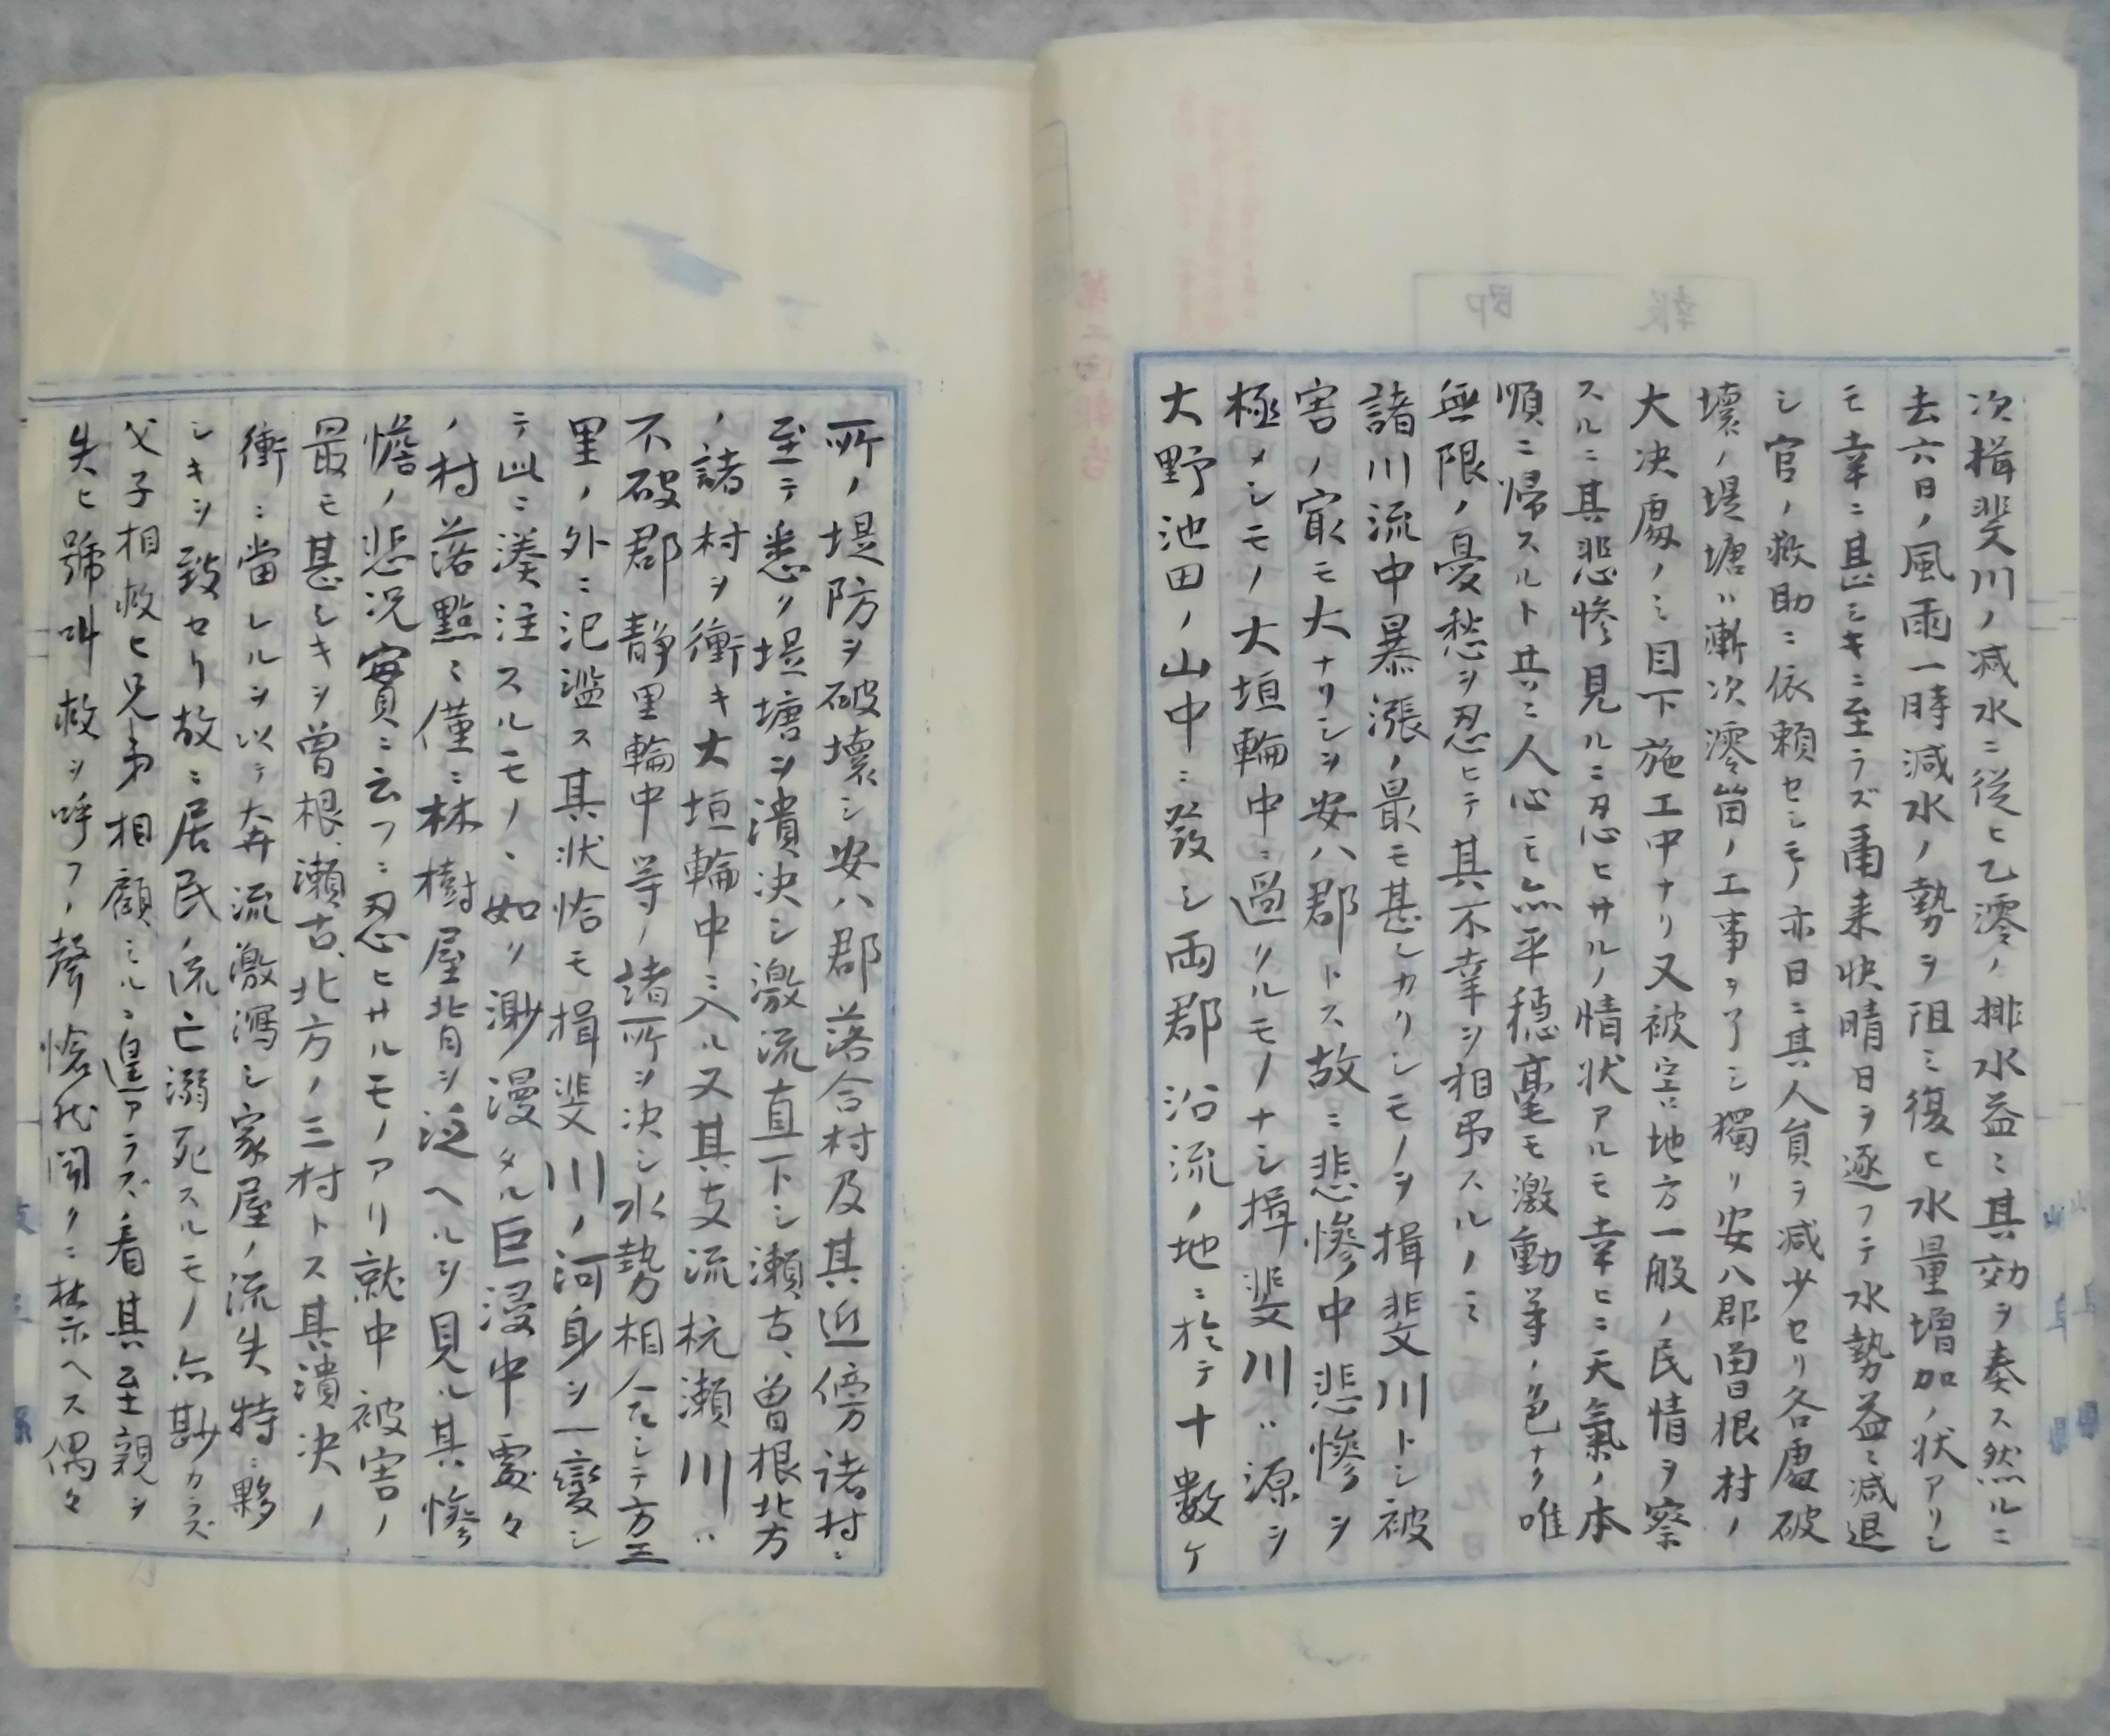 次揖斐川ノ減水ニ従ヒ乙澪ノ排水益ニ其効ヲ奏ス然ルニ
去六日ノ風雨一時減水ノ勢ヲ阻ミ復ヒ水量増加ノ状アリシ
モ幸ニ甚シキニ至ラズ爾来快晴日ヲ逐フテ水勢益ニ減退
シ官ノ救助ニ依頼セシモノ亦日ニ其人員ヲ減少セリ各處破
壊ノ堤塘ハ漸次澪留ノ工事ヲ了シ獨リ安八郡曽根村ノ
大决處ノミ目下施工中ナリ又被害地方一般ノ民情ヲ察
スルニ其悲惨見ルニ忍ヒサルノ情状アルモ幸ヒニ天氣ノ本
順ニ帰スルト共ニ人心モ亦平穏毫モ激動等ノ色ナク唯
無限ノ憂愁ヲ忍ヒテ其不幸ヲ相弔スルノミ
諸川流中暴漲ノ最モ甚シカリシモノヲ揖斐川トシ被
害ノ㝡モ大ナリシヲ安八郡トス故ニ悲惨中悲惨ヲ
極メシモノ大垣輪中ニ過クルモノナシ揖斐川ハ源ヲ
大野池田ノ山中ニ發シ両郡沿流ノ地ニ於テ十数ケ
所ノ堤防ヲ破壊シ安八郡落合村及其近傍諸村ニ
至テ悉ク堤塘ヲ潰决シ激流直下シ瀬古、曽根北方
ノ諸村ヲ衝キ大垣輪中ニ入ル又其支流杭瀬川ハ
不破郡静里輪中等ノ諸所ヲ决シ水勢相合シテ方三
里ノ外ニ氾濫ス其状恰モ揖斐川ノ河身ヲ一變シ
テ此ニ湊注スルモノヽ如リ渺漫タル巨浸中處々
ノ村落點ニ僅ニ林樹屋背ヲ泛ヘルヲ見ル其惨
憺ノ悲况實ニ云フニ忍ヒサルモノアリ就中被害ノ
最モ甚シキヲ曽根、瀬古、北方ノ三村トス其潰决ノ
衝ニ當レルヲ以テ奔流激瀉シ家屋ノ流失特ニ夥
シキヲ致セリ故ニ居民ノ流亡溺死スルモノ亦尠カラズ
父子相救ヒ兄弟相顧ミルニ遑アラズ、看其至親ヲ
失ヒ號叫救ヲ呼フノ聲愴然聞クニ堪ヘス偶々
第二回報告
即報